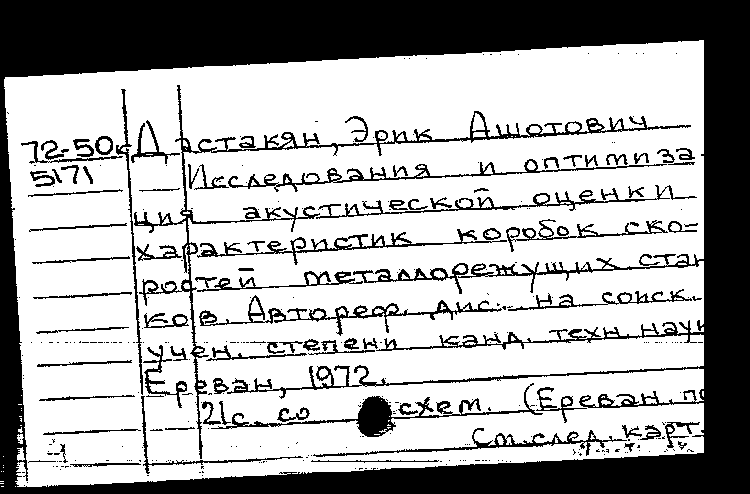 72-50к Дастакян, Эрик Ашотович
5171 Исследования и оптимиза-
ция акустической оценки
характеристик коробок ско-
ростей металлорежущих стан
ков. Автореф. дис. на соиск.
учен. степени канд. техн. наук
Ереван, 1972.
21с. со схем. (Ереван. по
См. след. карт.